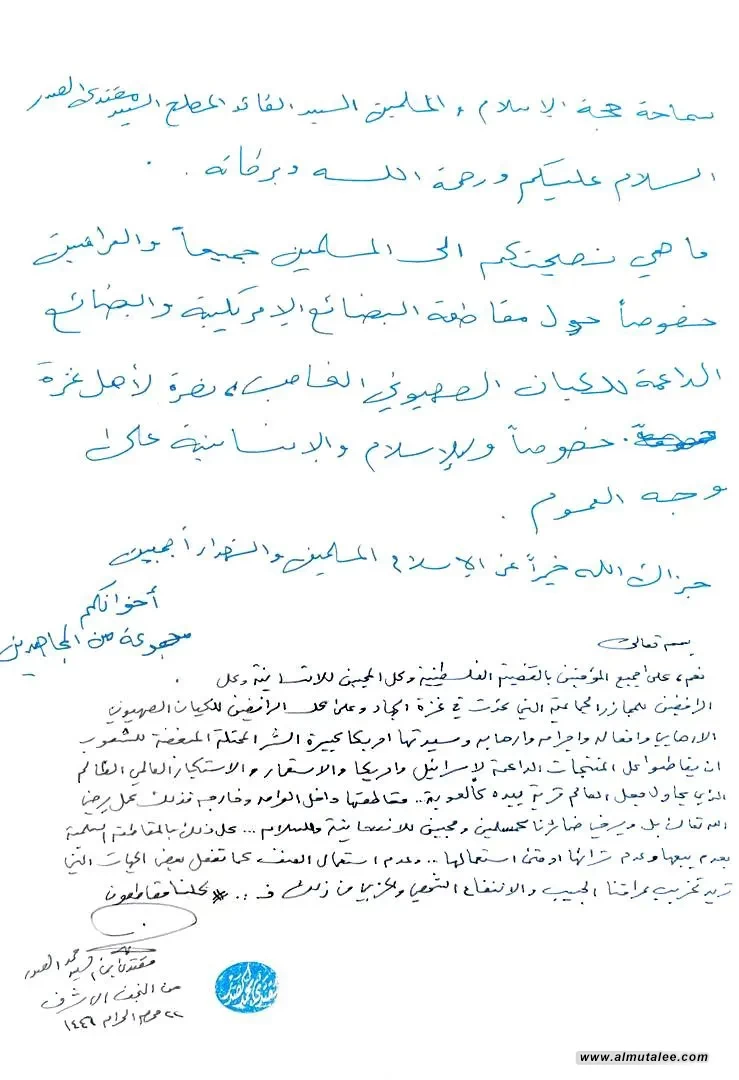 سماحة حجة الإسلام والمسلمين السيد القائد المصلح السيد مقتدى الصدر
السلام عليكم ورحمة اللـــه وبركاته .
ما هي نصيحتكم الى المسلمين جميعاً والعراقيين
خصوصاً حول مقاطعة البضائع الامريكية والبضائع
الداعمة للكيان الصهيوني الغاصب، نصرة لأهل غزة
خصوصاً وللإسلام والإنسانية على
وجه العموم .
جزاك الله خيراً عن الإسلام المسلمين والشهداء أجمعين
أخوانكم
مجموعة من المجاهدين
بسمه تعالى
نعم، على جميع المؤمنين بالقضية الفلسطينية وكل المحبين للانسانية وكل
الرافضين للمجازر الجماعية التي حدثت في غزة الجهاد وعلى كل الرافضين للكيان الصهيوني
الارهابي وافعاله واجرامه وارهابه وسيدتها امريكا كبيرة الشر المحتلة المبغضة للشعوب
ان يقاطعوا كل المنتجات الداعمة لإسرائيل وامريكا والاستعمار والاستكبار العالمي الظالم
الذي يحاول جعل العالم قرية بيده كألعوبة .. مقاطعتها داخل العراق وخارجه فذلك عمل يرضي
الله تعالى بل ويرضي ضمائرنا كمسلمين ومحبين للانسانية وللسلام ... كل ذلك بالمقاطعة السلمية
بعدم بيعها وعدم شرائها او حتى استعمالها .. وعدم استعمال العنف كما تفعل بعض الجهات التي
تريد تخريب عراقنا الحبيب والانتفاع الشخصي والحزبي من ذلك فـ .. # كلنا مقاطعون
مقتدى ابن السيد محمد الصدر
من النجف الاشرف
٢٢ محرم الحرام ١٤٤٦
www.almutalee.com